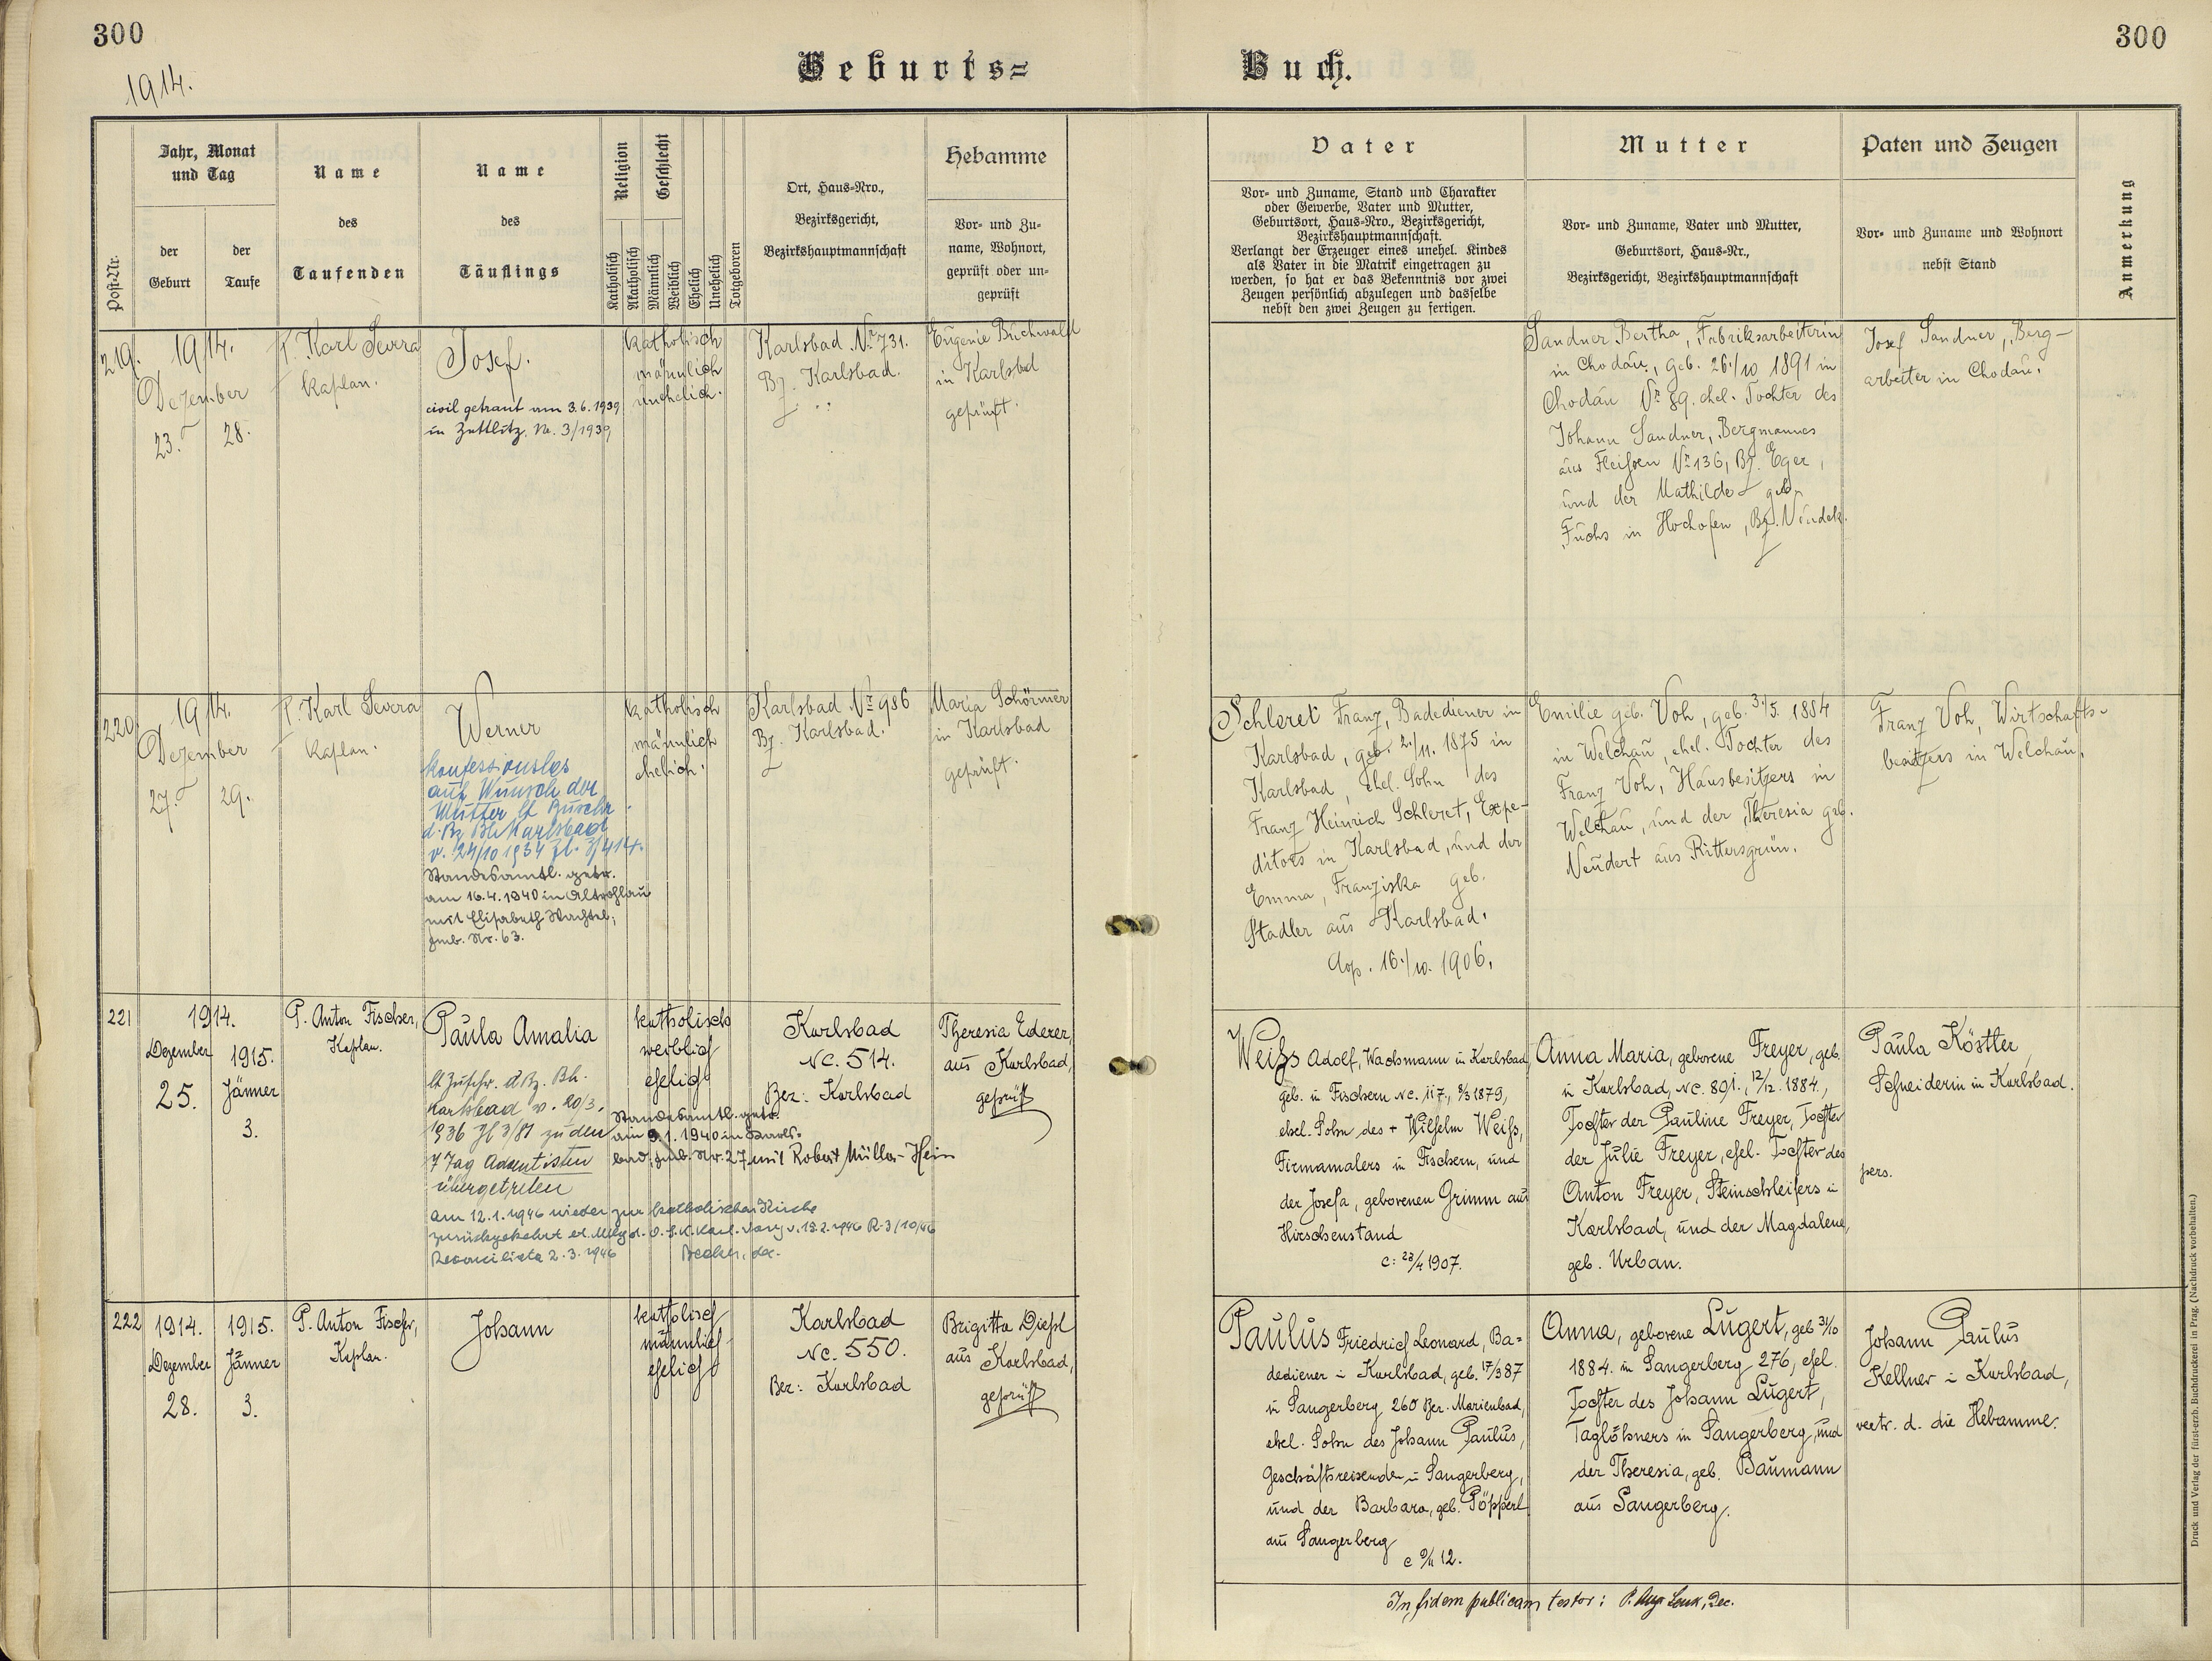 300
300
1914.
Geburts=
Buch.
Post-Nr.
Jahr, Monat
und Tag
der
Geburt
der
Taufe
Name
des
Taufenden
Name
des
Täuflings
Religion
Geschlecht
Katholisch
Akatholisch
Männlich
Weiblich
Ehelich
Unehelich
Totgeboren
Ort, Haus-Nro.,
Bezirksgericht,
Bezirkshauptmannschaft
Hebamme
Vor- und Zu-
name, Wohnort,
geprüft oder un-
geprüft
Vater
Vor- und Zuname, Stand und Charakter
oder Gewerbe, Vater und Mutter,
Geburtsort, Haus-Nro., Bezirksgericht,
Bezirkshauptmannschaft.
Verlangt der Erzeuger eines unehel. Kindes
als Vater in die Matrik eingetragen zu
werden, so hat er das Bekenntnis vor zwei
Zeugen persönlich abzulegen und dasselbe
nebst den zwei Zeugen zu fertigen.
Mutter
Vor- und Zuname, Vater und Mutter,
Geburtsort, Haus-Nr.,
Bezirksgericht, Bezirkshauptmannschaft
Paten und Zeugen
Vor- und Zuname und Wohnort
nebst Stand
Anmerkung
219.
1914.
Dezember
23.
28.
P. Karl Severa
Kaplan.
Josef.
civil getraut am 3.6.1939
in Zettlitz, Nr. 3/1939
katholisch
männlich
unehelich.
Karlsbad Nr. 731.
Bz. Karlsbad.
Eugenie Buchwald
in Karlsbad
geprüft.
Sandner Bertha, Fabriksarbeiterin
in Chodau, geb. 26./10 1891 in
Chodau Nr. 89. ehel. Tochter des
Johann Sandner, Bergmannes
aus Fleißen Nr. 136, Bz. Eger,
und der Mathilde geb.
Fuchs in Hochofen, Bz. Neudek.
Josef Sandner, Berg-
arbeiter in Chodau.
220
1914.
Dezember
27.
29.
P. Karl Severa
Kaplan.
Werner
konfessionslos
auf Wunsch der
Mutter lt Zuschr.
d. Bz Bh Karlsbad
v. 24/10 1934 Zl. 3/414.
Standesamtl. getr.
am 16.4.1940 in Altrohlau
mit Elisabeth Wachtel,
Nr. 63.
katholisch
männlich
ehelich.
Karlsbad Nr. 986
Bz. Karlsbad.
Maria Schörmer
in Karlsbad
geprüft.
Schleret Franz, Badediener in
Karlsbad, geb. 2./11. 1875 in
Karlsbad, ehel. Sohn des
Franz Heinrich Schleret, Expe-
ditors in Karlsbad, und der
Emma, Franziska geb.
Stadler aus Karlsbad.
Cop. 16./10. 1906.
Emilie geb. Voh, geb. 3./5. 1884
in Welchau, ehel. Tochter des
Franz Voh, Hausbesitzers in
Welchau, und der Theresia geb.
Neudert aus Rittersgrün.
Franz Voh, Wirtschafts-
besitzers in Welchau.
221
1914.
Dezember
25.
1915.
Jänner
3.
P. Anton Fischer,
Kaplan.
Paula Amalia
lt Zuschr. d Bz. Bh.
Karlsbad v. 20/3.
1936 Zl 3/81 zu den
7 Tag Adventisten
übergetreten
Standesamtl. getr.
am 9.1.1940 in Karls-
bad, Nr. 27 mit Robert Müller-Hein
am 12.1.1946 wieder zur katholischen Kirche
zurückgekehrt
Reconciliata 2.3.1946
katholisch
weiblich
ehelich
Karlsbad
NC. 514.
Bez: Karlsbad
Theresia Ederer,
aus Karlsbad,
geprüft
Weiss Adolf, Wachmann in Karlsbad,
geb. in Fischern NC. 117., 8/3 1879,
ehel. Sohn des + Wilhelm Weiss,
Firmamalers in Fischern, und
der Josefa, geborenen Grimm aus
Hirschenstand
C: 23/4 1907.
Anna Maria, geborene Freyer, geb.
in Karlsbad, NC. 891., 12/12. 1884.,
Tochter der Pauline Freyer, Tochter
der Julie Freyer, ehel. Tochter des
Anton Freyer, Steinschleifers in
Karlsbad, und der Magdalena,
geb. Urban.
Paula Köstler,
Schneiderin in Karlsbad.
pers.
222
1914.
Dezember
28.
1915.
Jänner
3.
P. Anton Fischer,
Kaplan.
Johann
katholisch
männlich
ehelich
Karlsbad
NC. 550.
Bez: Karlsbad
Brigitta Diessl
aus Karlsbad,
geprüft
Paulus Friedrich Leonard, Ba=
dediener in Karlsbad, geb. 17/9 87
in Sangerberg 260 Bez. Marienbad,
ehel. Sohn des Johann Paulus,
Geschäftsreisenden in Sangerberg,
und der Barbara, geb. Pöpperl
aus Sangerberg
Anna, geborene Lugert, geb 31/10
1884. in Sangerberg 276, ehel.
Tochter des Johann Lugert,
Taglöhners in Sangerberg, und
der Theresia, geb. Baumann
aus Sangerberg.
Johann Paulus
Kellner in Karlsbad,
vertr. d. die Hebamme.
In fidem publicam testor: P. Aug. Lenk, Dec.
Druck und Verlag der fürst-erzb. Buchdruckerei in Prag. (Nachdruck vorbehalten.)